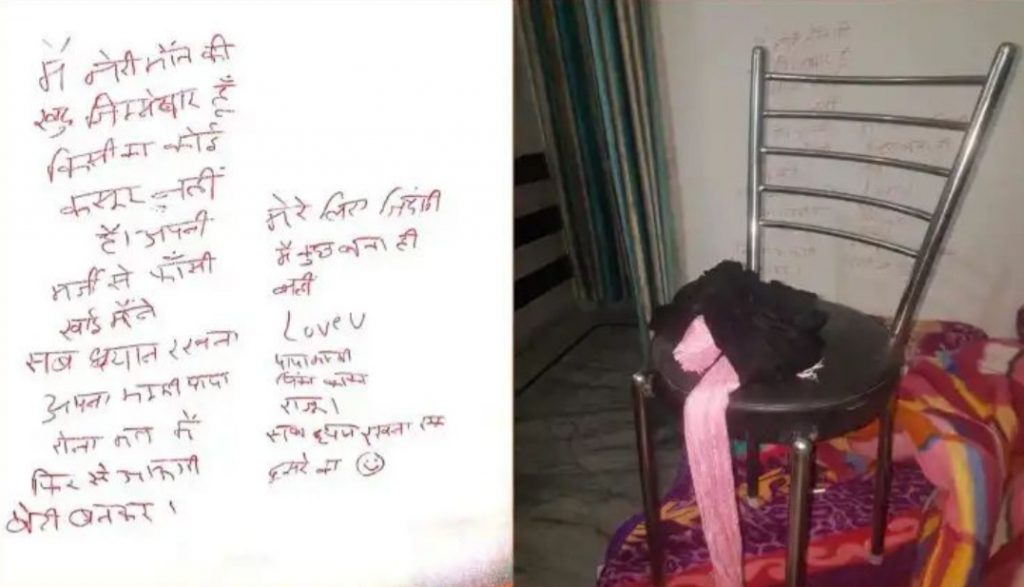 में मेरी मौत की
खुद जिम्मेदार हूँ
किसी का कोई
कसूर नहीं
है। अपनी
मर्जी से फाँसी
खाई मैंने
सब ध्यान रखना
अपना मम्मी पापा
रोना मत मैं
फिर से आऊंगी
बेटी बनकर।
मेरे लिए जिंदगी
मैं कुछ बना ही
नहीं
Love U
पापा मम्मी
राजू।
सब ध्यान रखना एक
दूसरे का